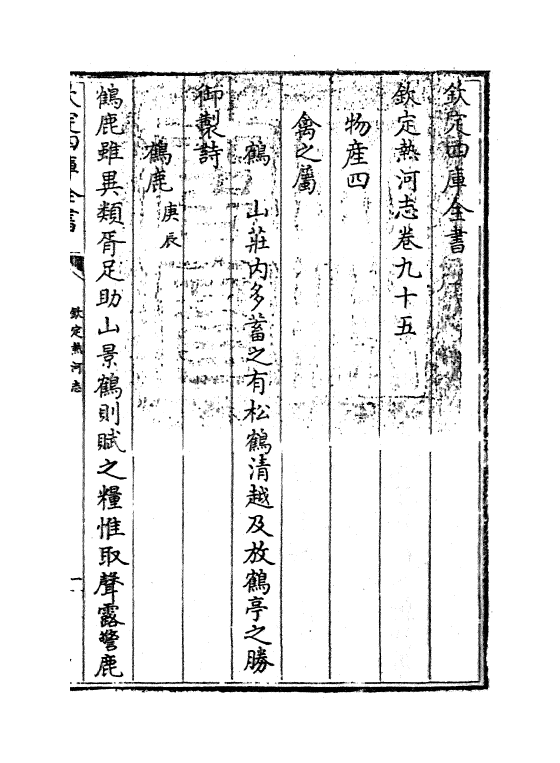 欽定四庫全書
欽定熱河志卷九十五
物産四
禽之屬
鶴 山莊内多蓄之有松鶴清越及放鶴亭之勝
御製詩
鶴鹿庚辰
鶴鹿雖異類胥足助山景鶴則賦之糧惟取聲露警鹿
欽定四庫全書
欽定熱河志
一